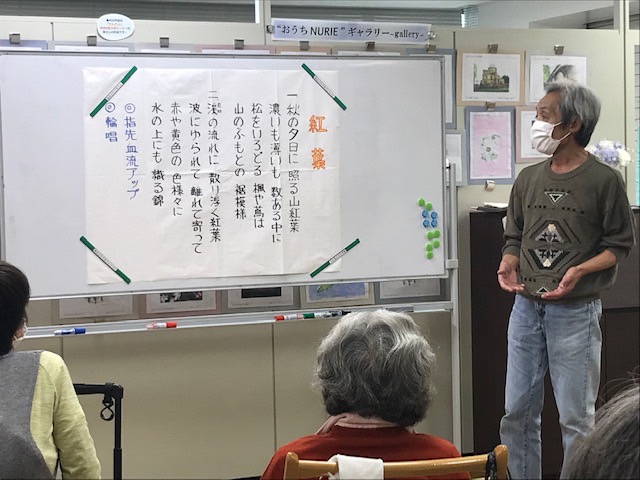 "おうちNURIE"ギャラリー~gallery~
紅葉
一 秋の夕日に 照る山紅葉
濃いも薄いも 数ある中に
松をいろどる 楓や蔦は
山のふもとの 裾模様
二 渓の流れに 散り浮く紅葉
波にゆられて 離れて寄って
赤や黄色の 色様々に
水の上にも 織る錦
◎指先血流アップ
◎輪唱